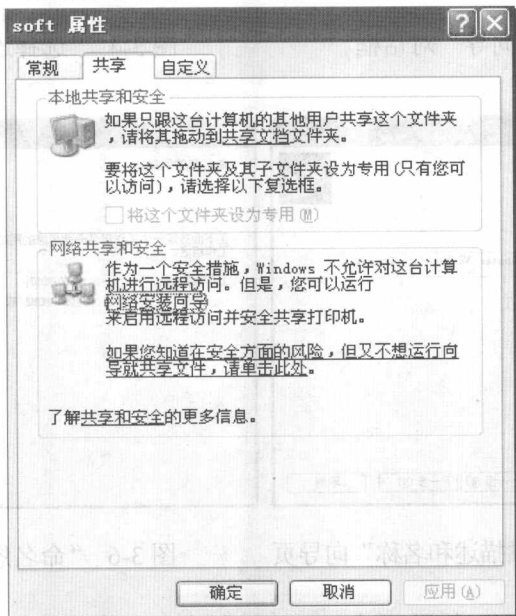 soft 属性
常规 共享 自定义
本地共享和安全
如果只跟这台计算机的其他用户共享这个文件夹
，请将其拖动到共享文档文件夹。
要将这个文件夹及其子文件夹设为专用(只有您可
以访问)，请选择以下复选框。
将这个文件夹设为专用(M)
网络共享和安全
作为一个安全措施，Windows 不允许对这台计算
机进行远程访问。但是，您可以运行
网络安装向导
来启用远程访问并安全共享打印机。
如果您知道在安全方面的风险，但又不想运行向
导就共享文件，请单击此处。
了解共享和安全的更多信息。
描述和名称”向导页 图 3-6 “命名
确定 取消 应用(A)